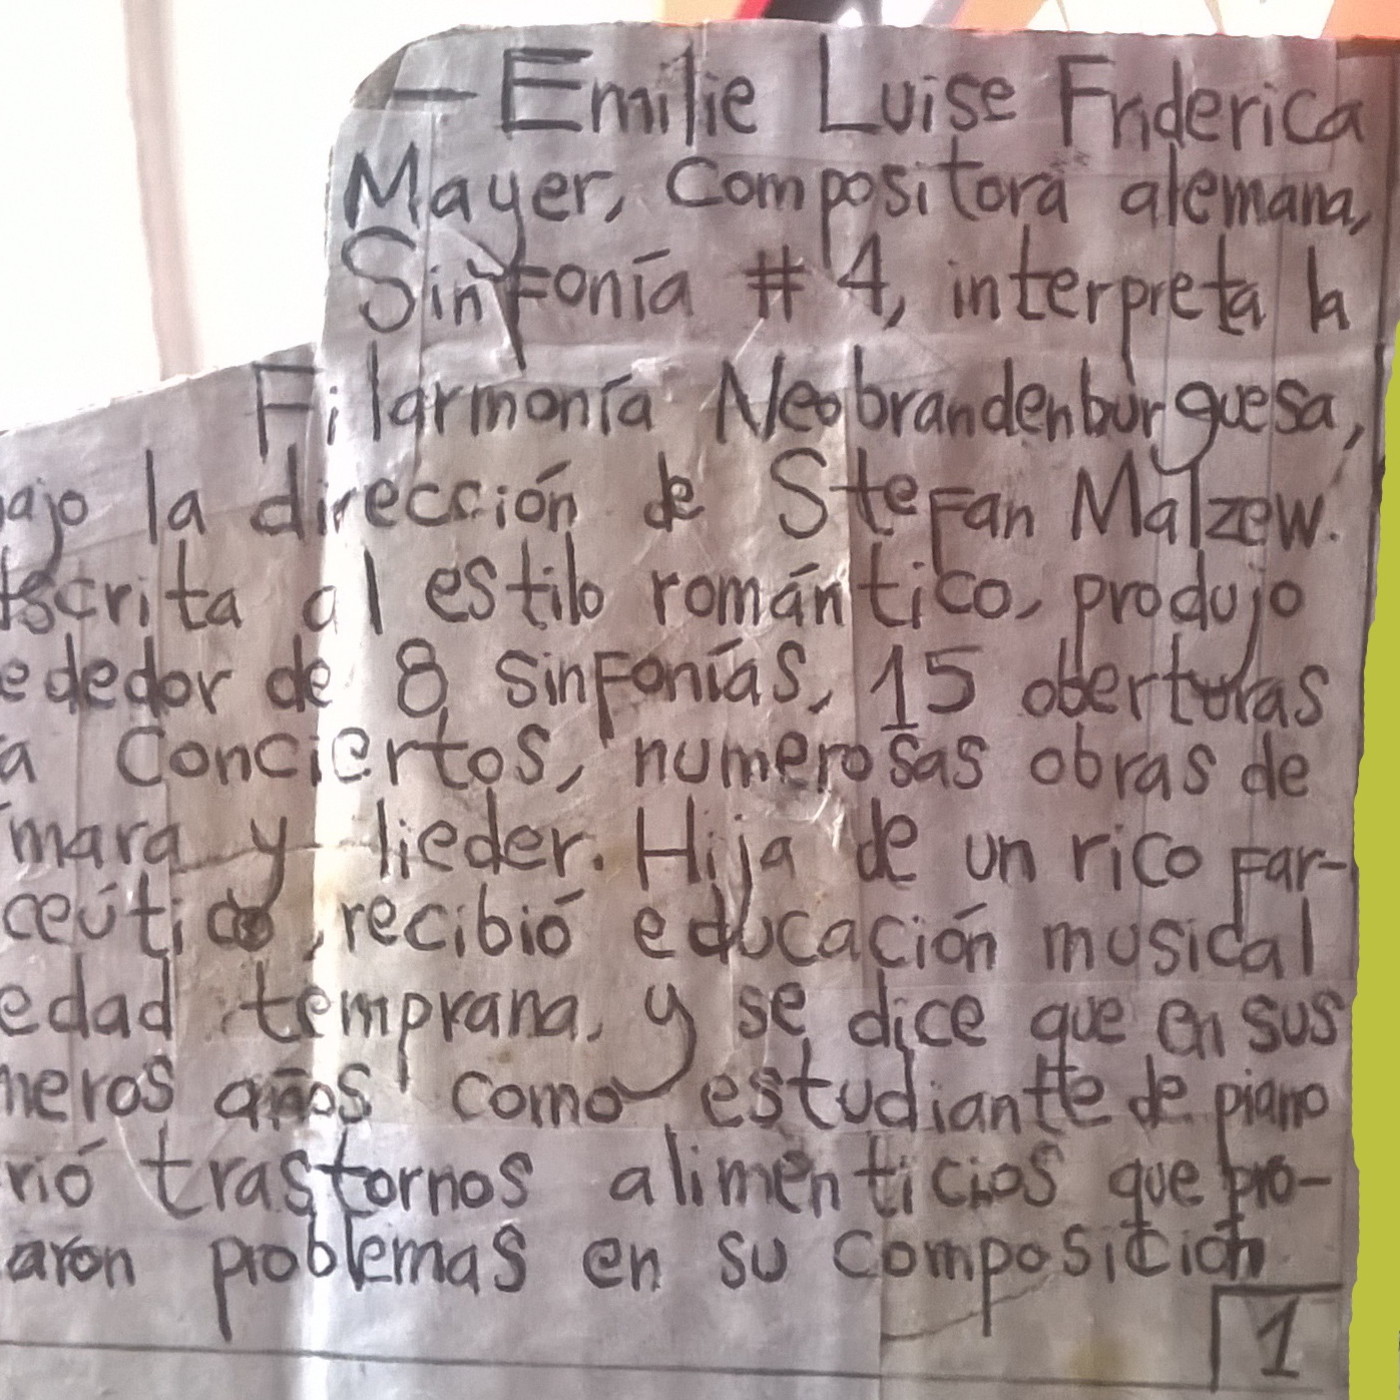 — Emilie Luise Friderica
Mayer, Compositora alemana,
Sinfonía #4, interpreta la
Filarmonía Neobrandenburguesa,
ajo la dirección de Stefan Malzew.
scrita al estilo romántico, produjo
ededor de 8 sinfonías, 15 oberturas
a conciertos, numerosas obras de
mara y lieder. Hija de un rico far-
ceútico, recibió educación musical
edad temprana, y se dice que en sus
meros años como estudiante de piano
rió trastornos alimenticios que pro-
aron problemas en su composición
1